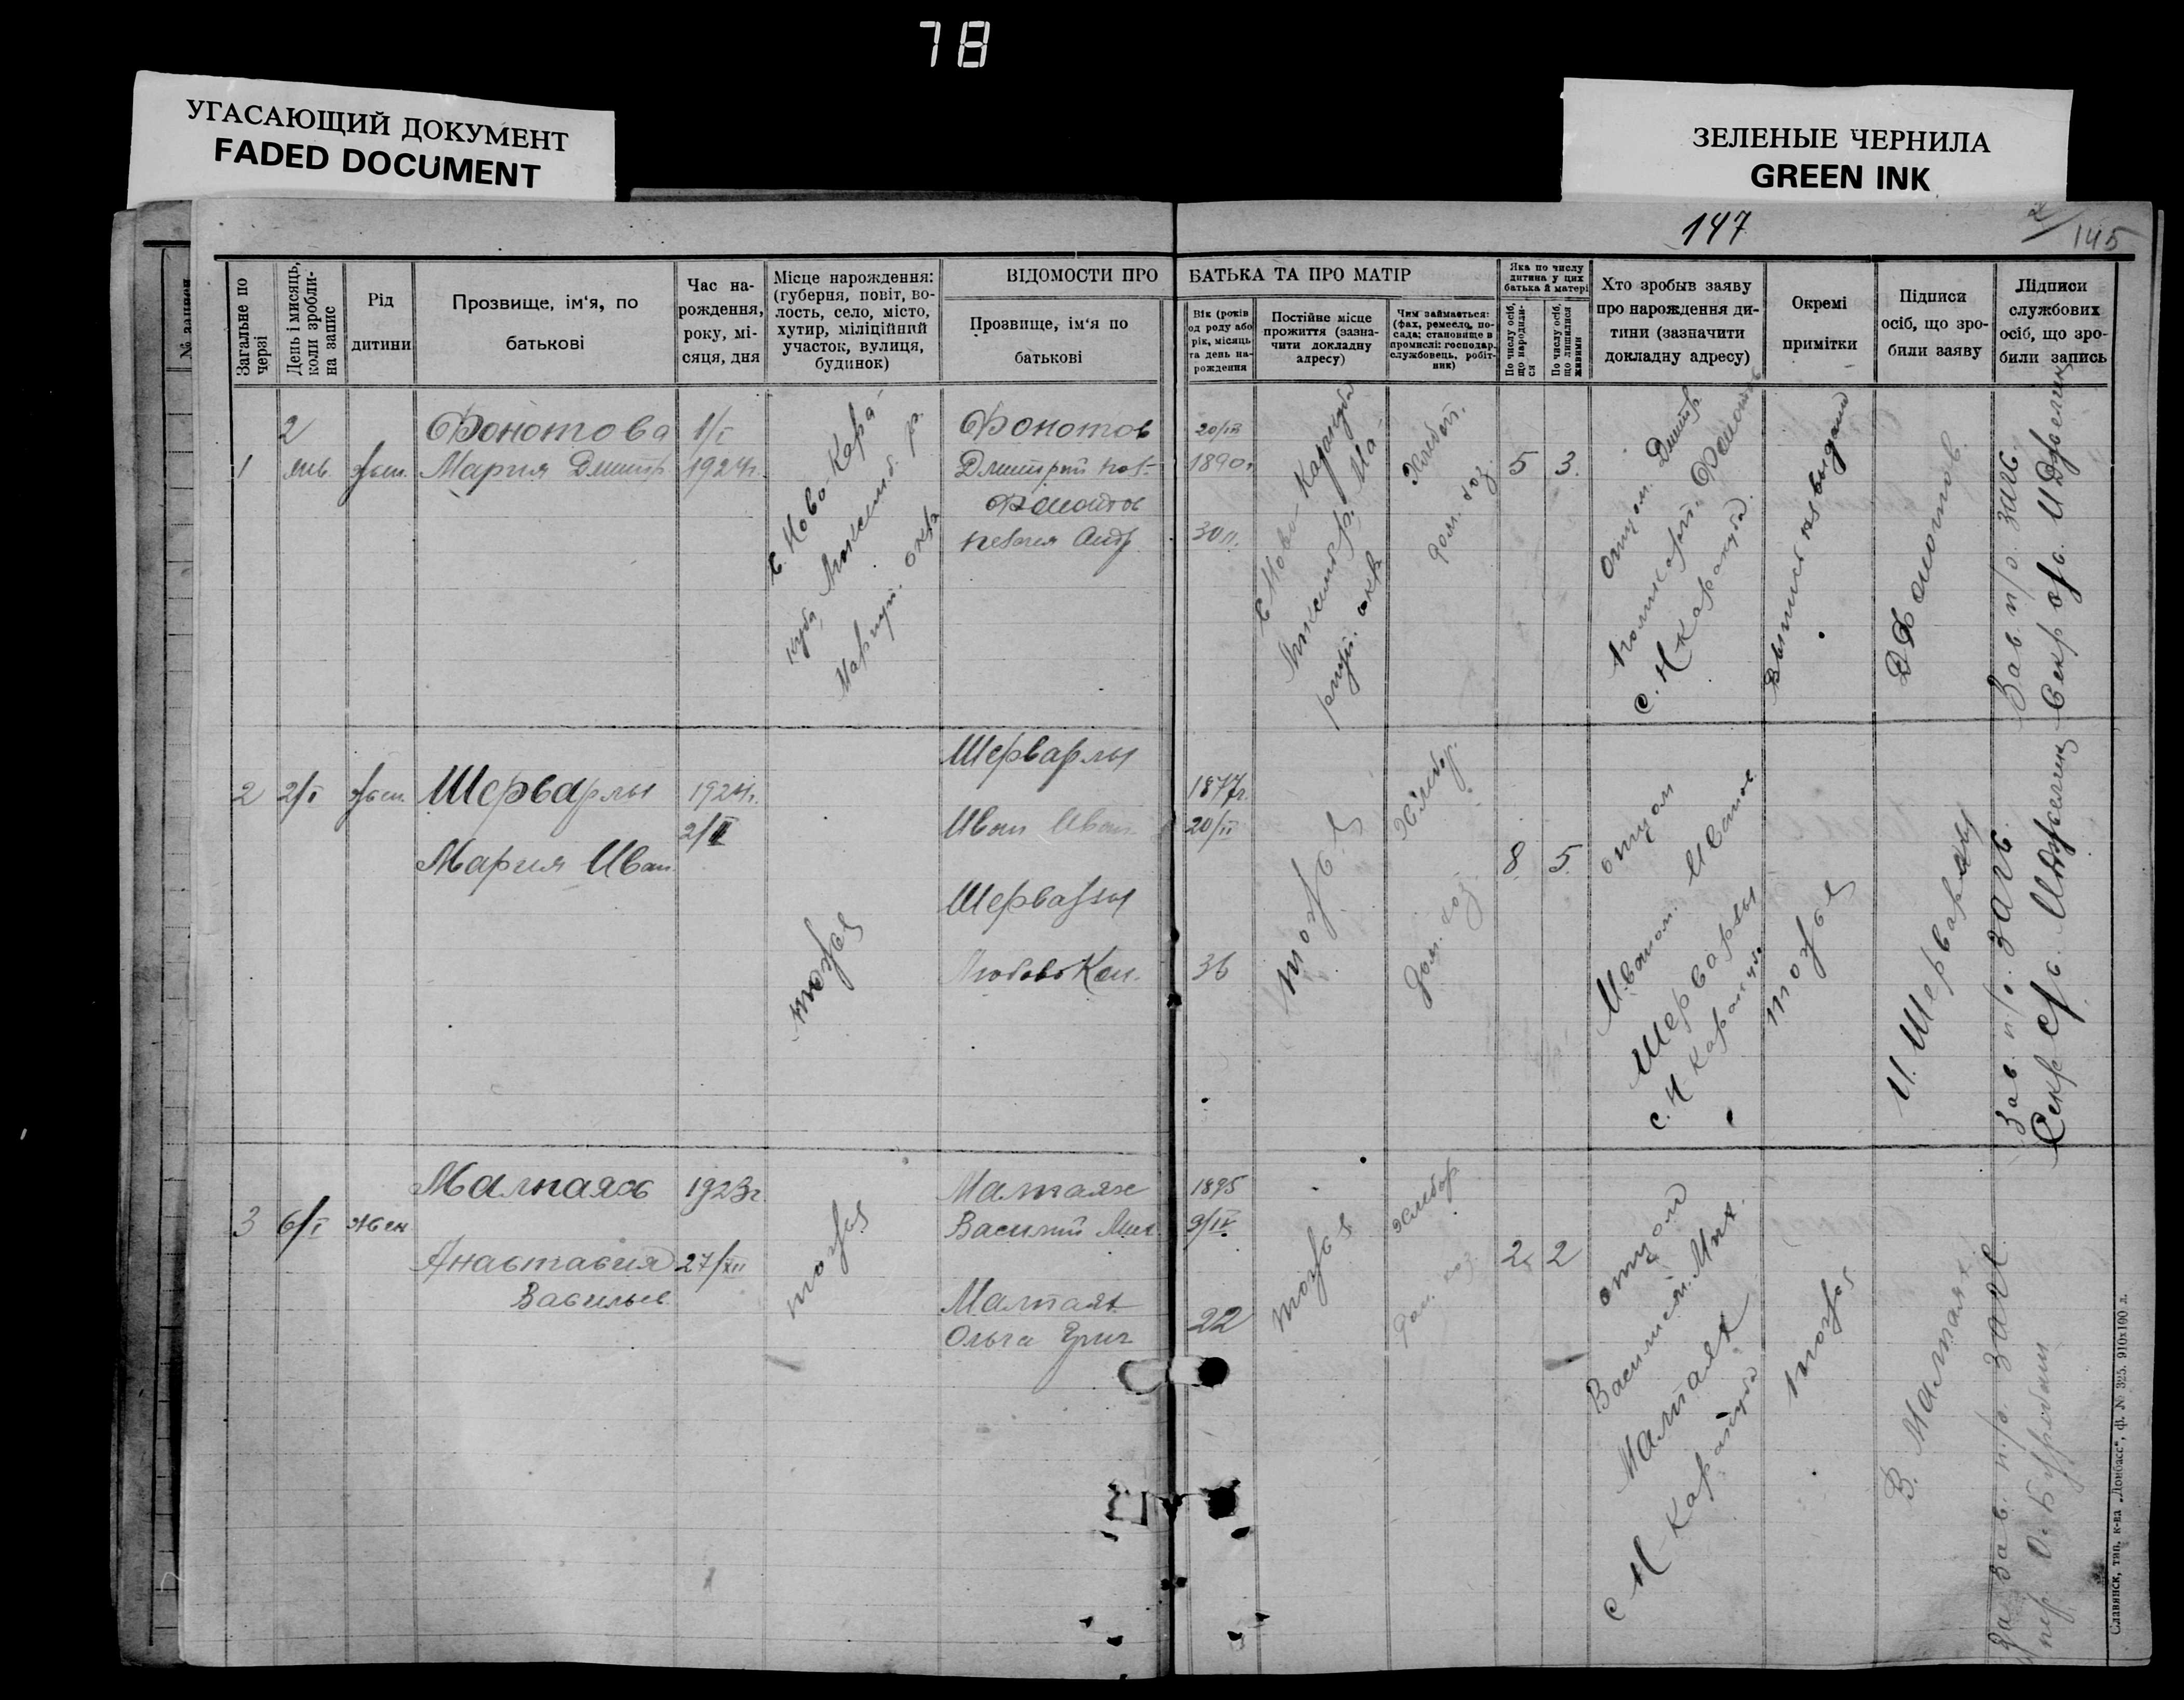 78
УГАСАЮЩИЙ ДОКУМЕНТ
FADED DOCUMENT
ЗЕЛЕНЫЕ ЧЕРНИЛА
GREEN INK
147
2/145
№ записи
Загальне по черзі
День і мисяць, коли зробли- на запис
Рід дитини
Прозвище, ім‘я, по батькові
Час на- рождення, року, мі- сяця, дня
Місце нарождення: (губерня, повіт, во- лость, село, місто, хутир, міліційний участок, вулиця, будинок)
ВІДОМОСТИ ПРО БАТЬКА ТА ПРО МАТІР
Прозвище, ім‘я по батькові
Вік (років од роду або рік, місяць та день на- рождення
Постійне місце прожиття (зазна- чити докладну адресу)
Чим займається: (фах, ремесло, по- сада; становище в промислі: господар, службовець, робіт- ник)
Яка по числу дитина у цих батька й матері
По числу осіб, що народили- ся
По числу осіб, що лишилися живими
Хто зробыв заяву про нарождення ди- тини (зазначити докладну адресу)
Окремі примітки
Підписи осіб, що зро- били заяву
Підписи службових осіб, що зро- били запись
1
2 янв.
жен.
Фонотова
Мария Дмитр.
1/I
1924г.
С. Ново-Кара-
куба
Мариуп. окр.
Фонотов
Дмитрий
20/III
1890г.
30 л.
С. Ново Каракуба
Хлебоп.
дом. хоз.
5
3.
Отцом. Дмитр.
С. Н Каракуба.
Выпись выдана
Зав. п/о. ЗАГС
Секр
2
2/I
жен.
Шерварлы
Мария Иван.
1924г.
2/I
тоже
Шерварлы
Иван Иван.
Шерварлы
Любовь Кон.
1877г.
20/II
36
тоже
Хлебор.
дом. хоз.
8
5.
отцом
Иваном. Иванов
Шерварлы
с. Н Каракуба
тоже
И. Шерварлы
Зав. п/о. ЗАГС.
Секр
3
6/I
жен
Малтаях
Анастасия
Васильев.
1923г
27/XII
тоже
Малтаях
Василий Мих.
Малтаях
Ольга Григ
1895
9/IV.
22
тоже
хлебор
дом. хоз.
2
2
отцом
Василием. Мих.
Малтаях
С Н Каракуба
тоже
В. Малтаях
За Зав. п/о. ЗАГС
Славянск, тип. к-ва „Донбасс“, ф. № 325. 910х100 л.